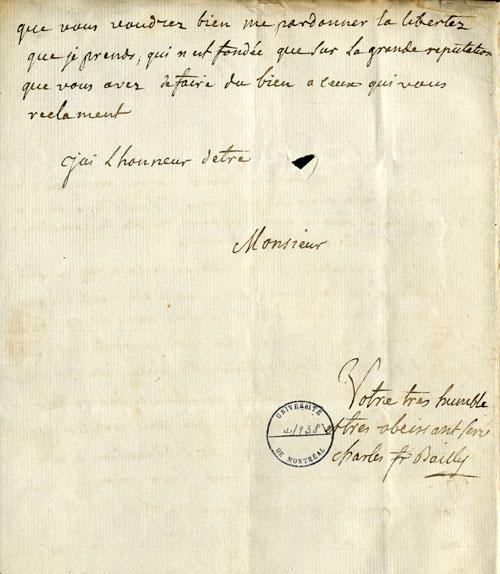 que vous voudrez bien me pardonner la libertez
que je prends; qui n'est fondée que sur la grande reputation
que vous avez de faire du bien a ceux qui vous
reclament
j'ai L'honneur d'etre
Monsieur
Votre tres humble
et tres obeissant serv
charles fr Bailly
UNIVERSITÉ
4/1938
DE MONTRÉAL